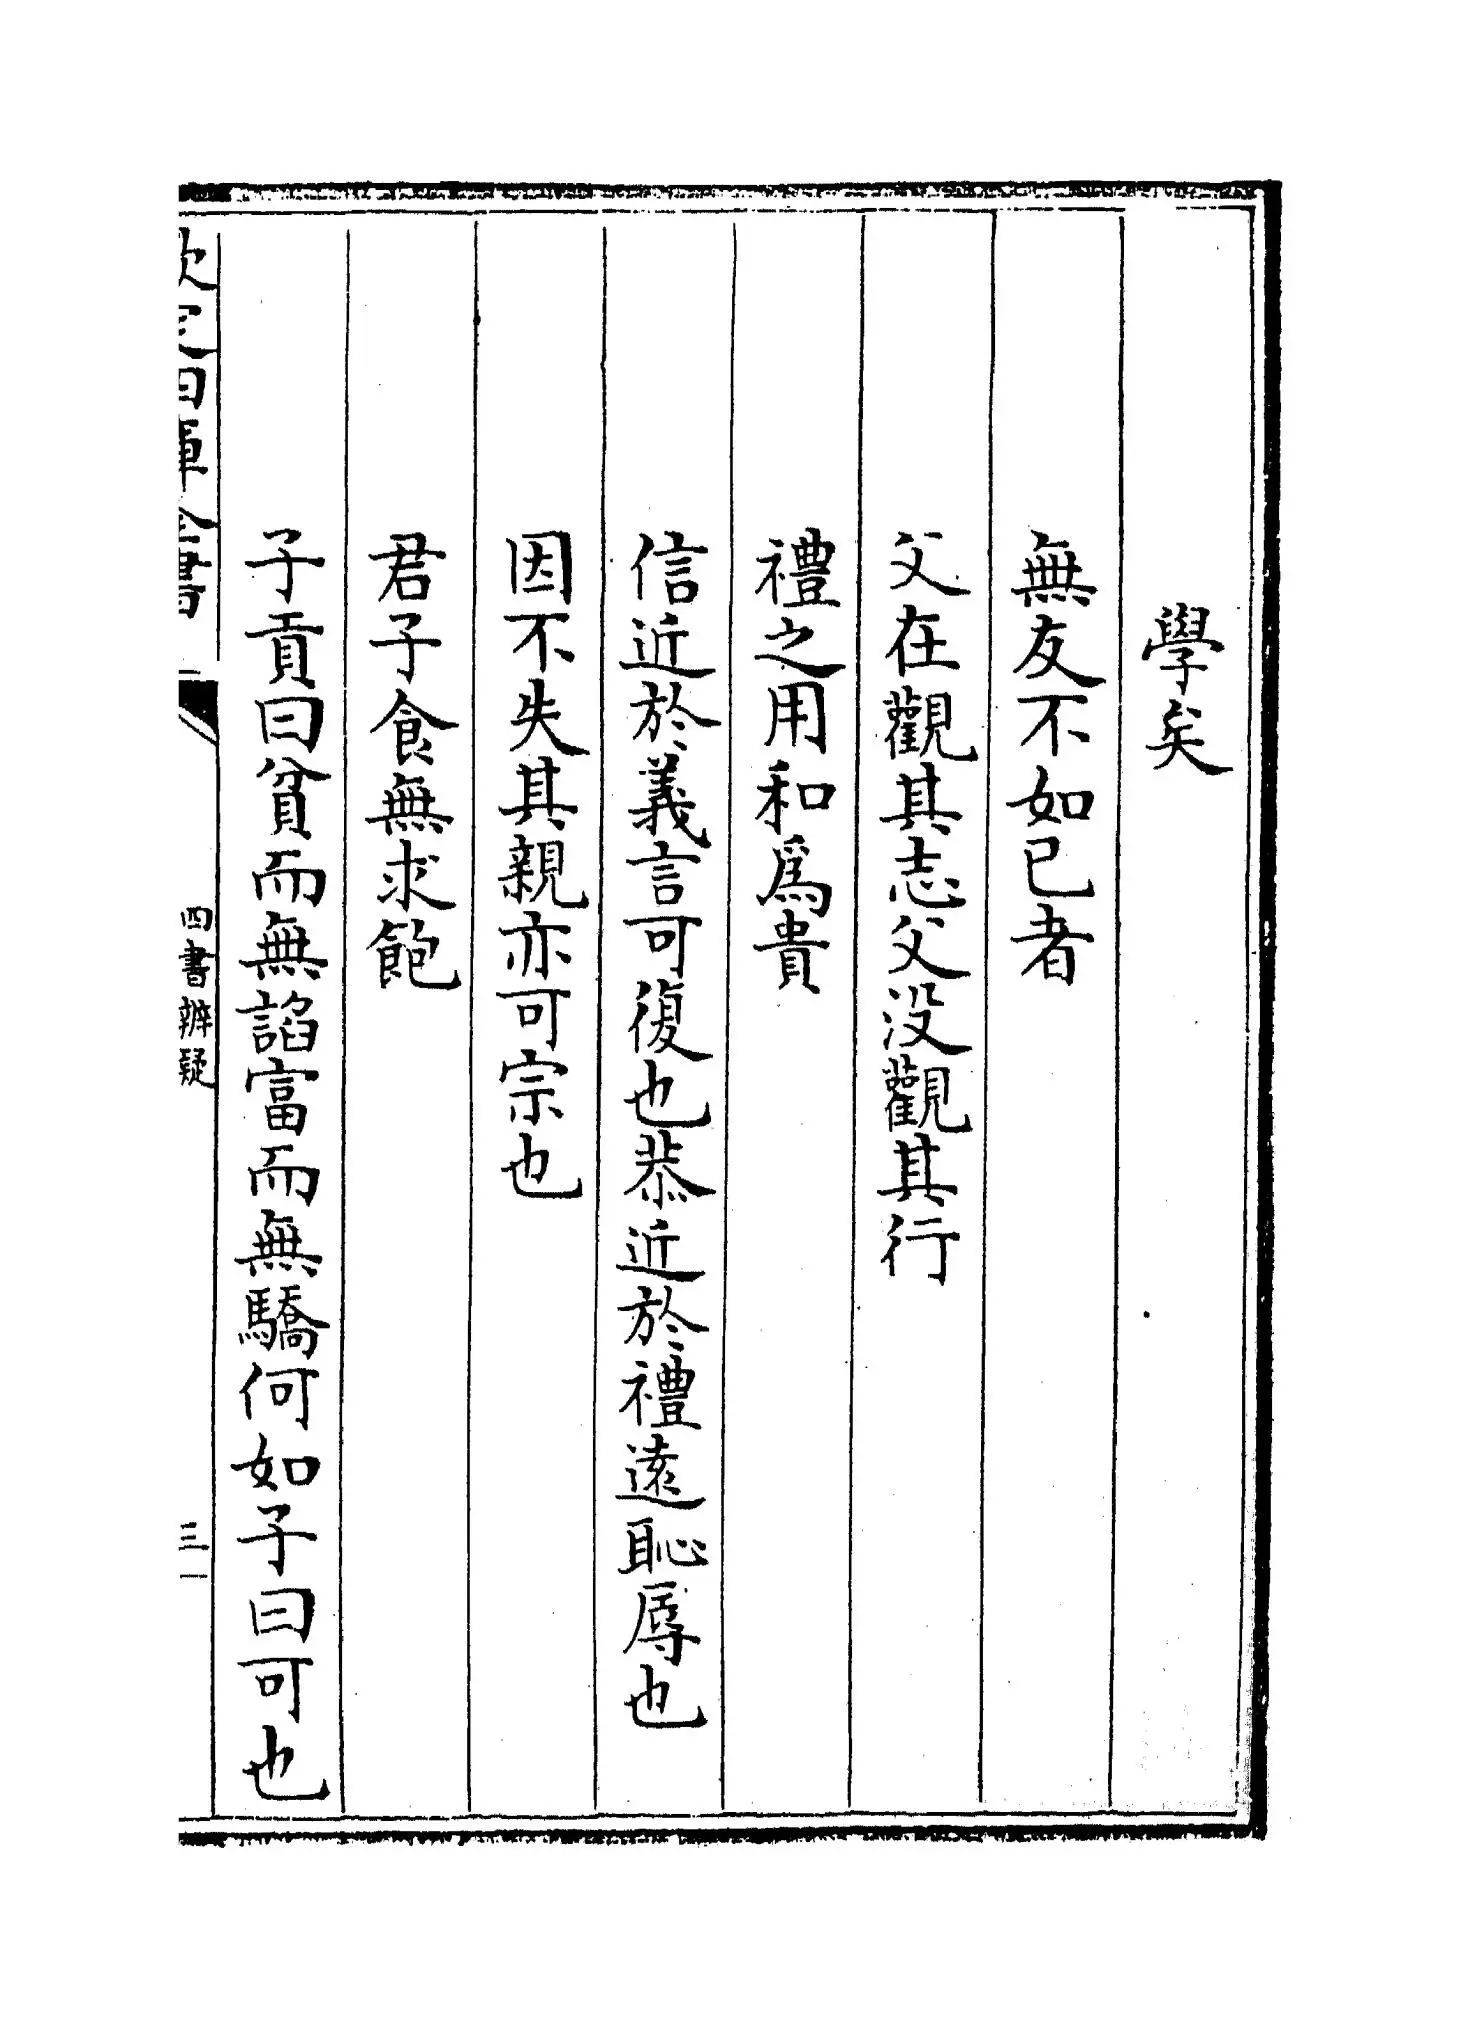 學矣
無友不如已者
父在觀其志父没觀其行
禮之用和爲貴
信近於義言可復也恭近於禮遠恥辱也
因不失其親亦可宗也
君子食無求飽
子貢曰貧而無諂富而無驕何如子曰可也
欽定四庫全書
四書辨疑
三